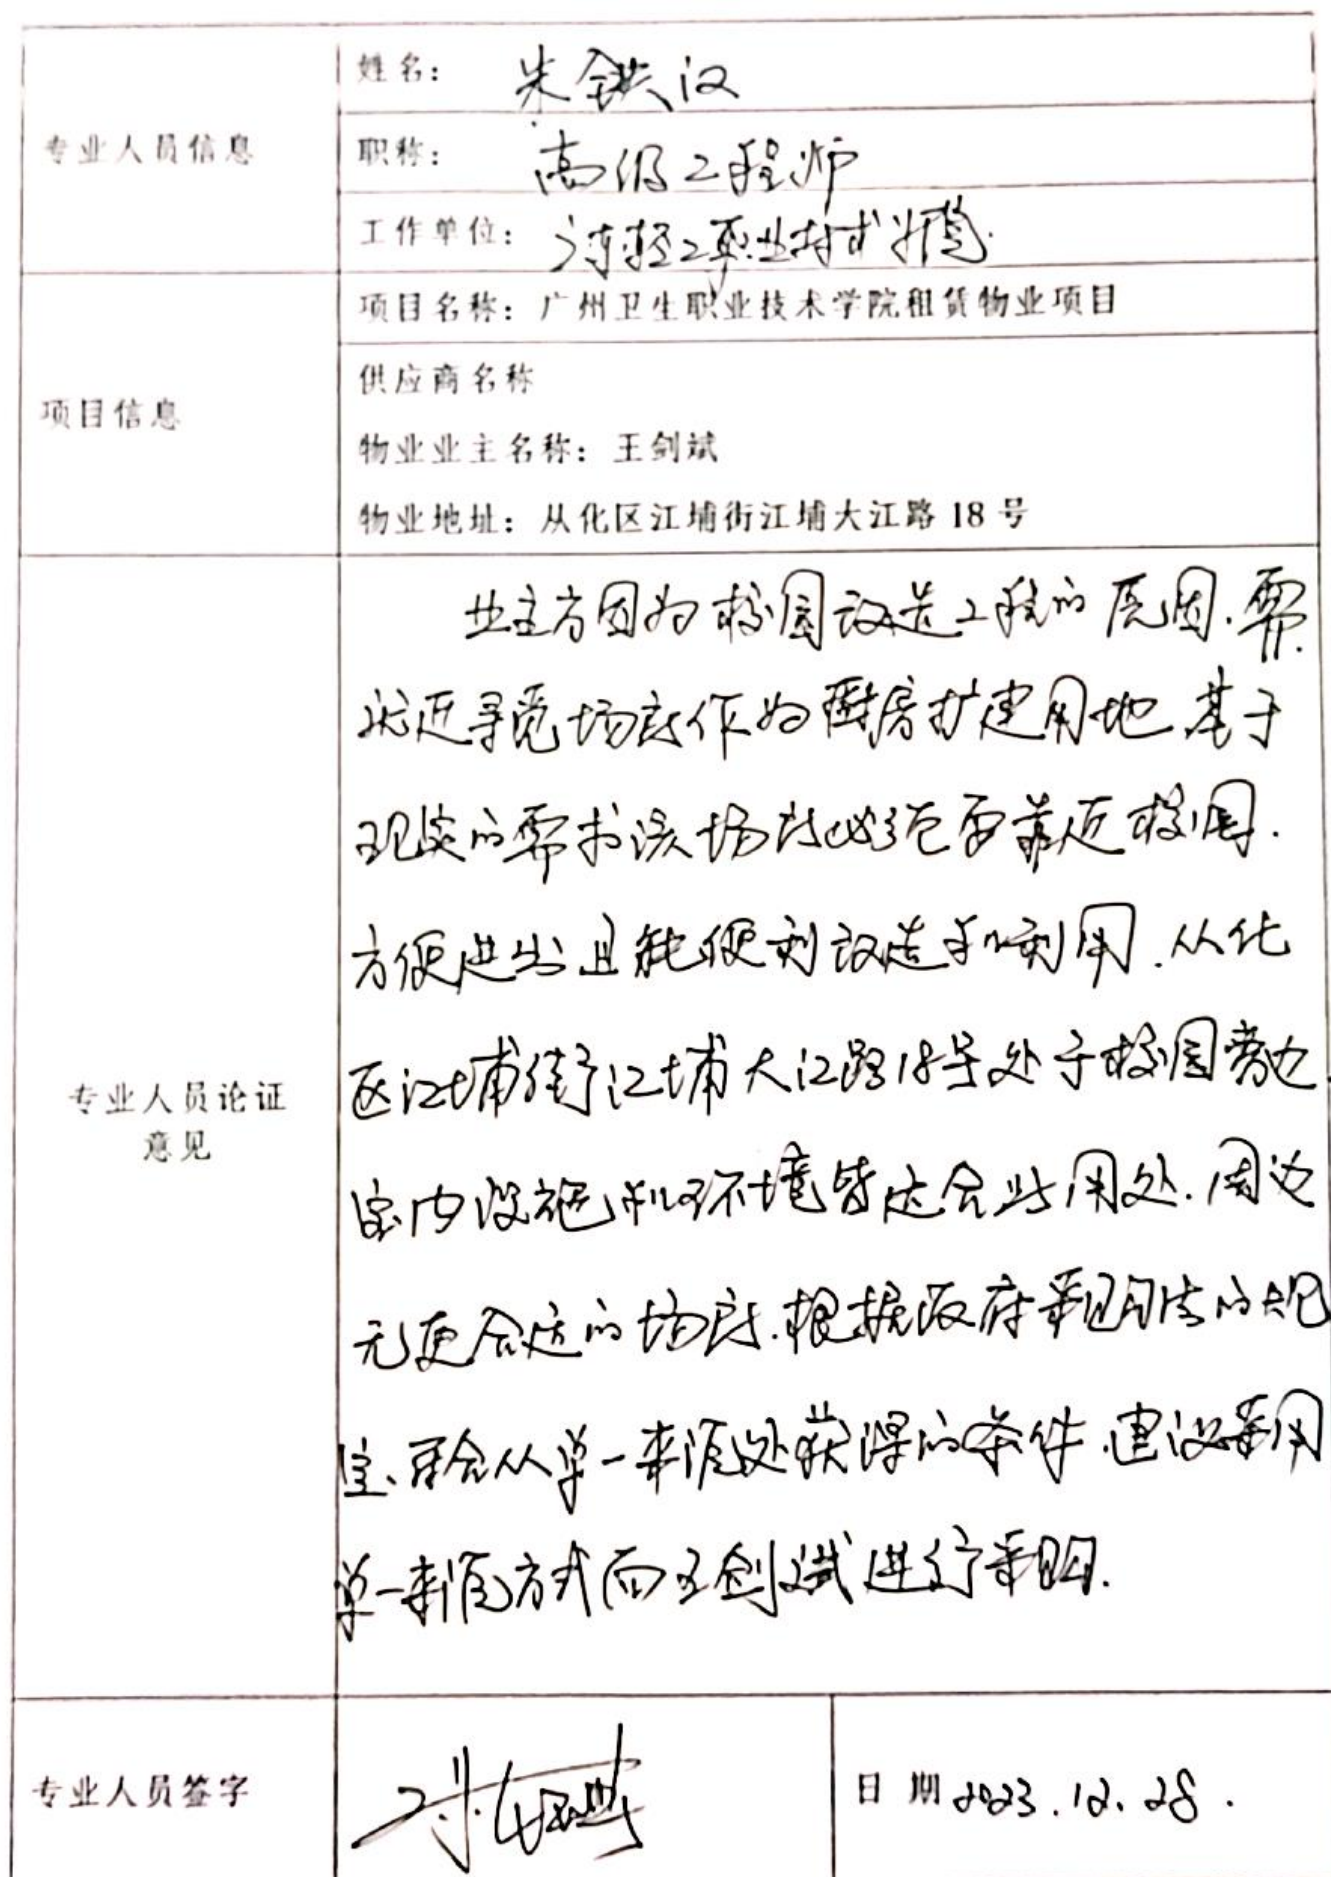 专业人员信息
姓名： 朱镁汉
职称： 高级工程师
工作单位： 广东轻工职业技术学院.
项目信息
项目名称：广州卫生职业技术学院租赁物业项目
供应商名称
物业业主名称：王剑斌
物业地址：从化区江埔街江埔大江路 18 号
专业人员论证
意见
业主方因为校园改造工程的原因.需
就近寻觅场所作为厨房扩建用地.基于
现实的需求该场所必须要靠近校园.
方便进出且能便利改造和利用.从化
区江埔街江埔大江路18号处于校园旁边.
室内设施和环境皆适合此用处.周边
无更合适的场所.根据政府采购法的规
定、符合从单一来源处获得的条件.建议采用
单一来源方式向王剑斌进行采购.
专业人员签字
日 期 2023.12.28.